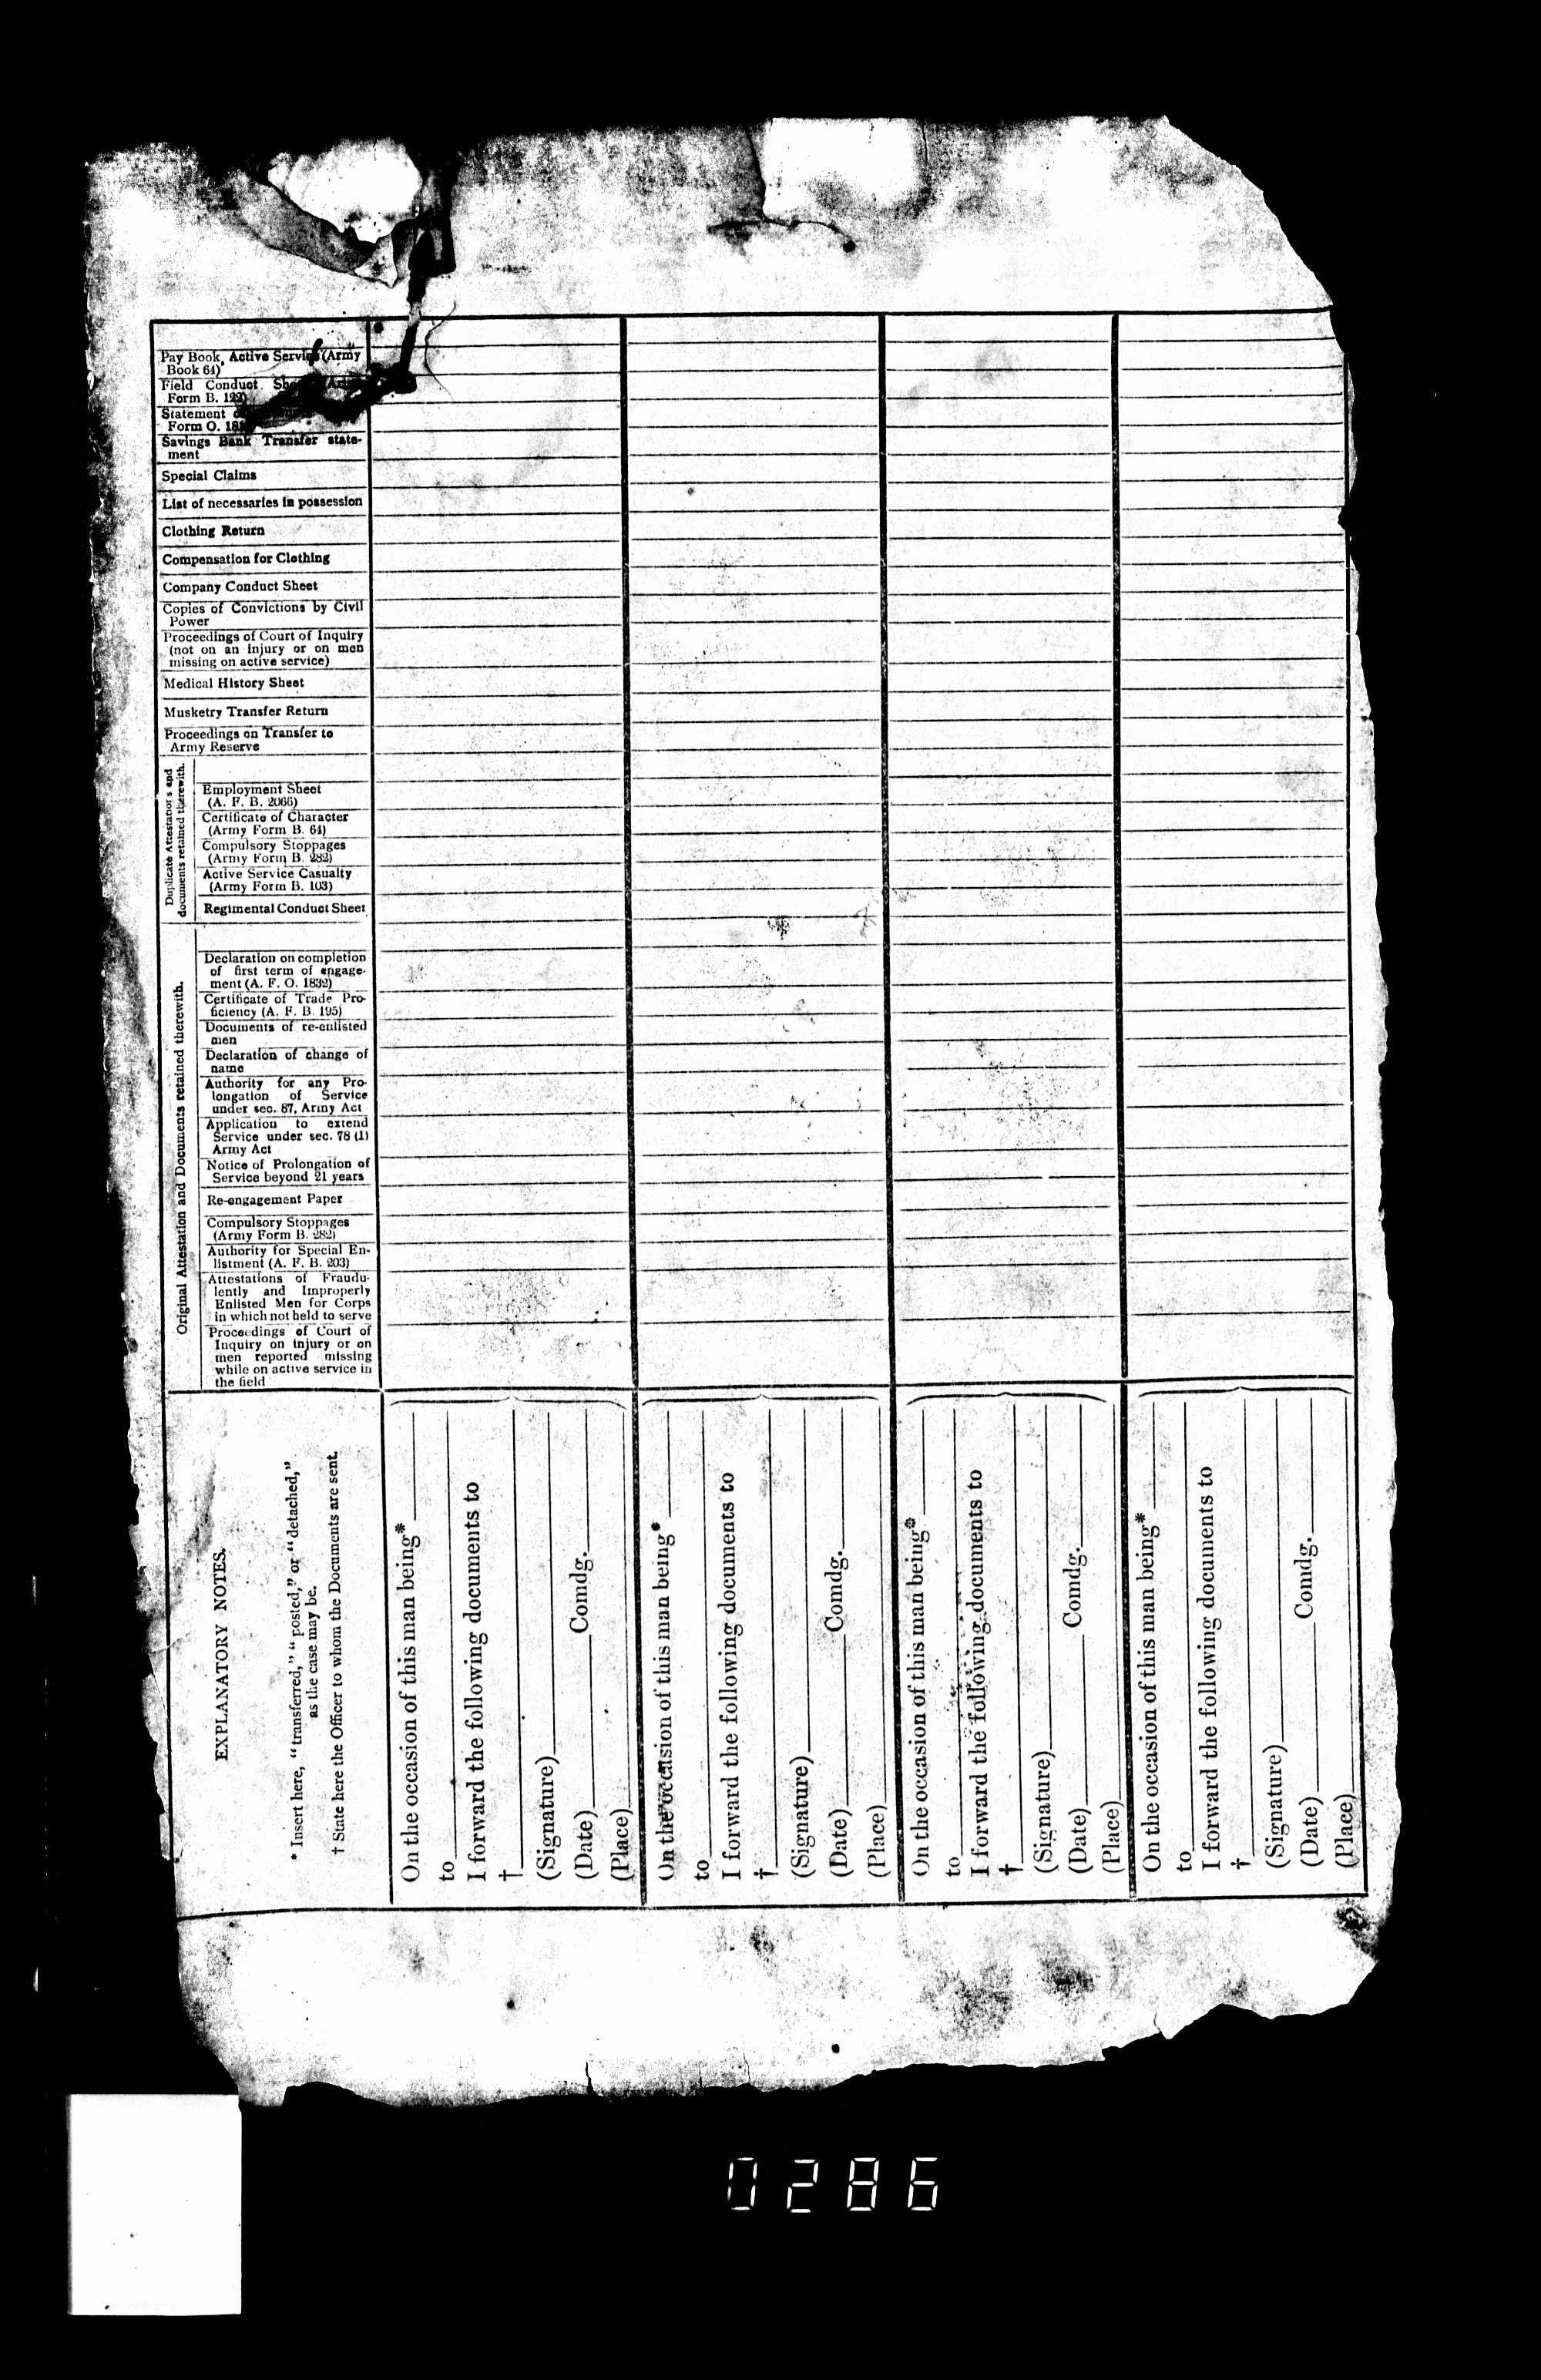 Pay Book, Active Service (Army
Book 64)
Field Conduct
Form B. 122)
Statement
Form O.
Savings Bank Transfer state-
ment
Special Claims
List of necessaries in possession
Clothing Return
Compensation for Clothing
Company Conduct Sheet
Copies of Convictions by Civil
Power
Proceedings of Court of Inquiry
(not on an injury or on men
missing on active service)
Medical History Sheet
Musketry Transfer Return
Proceedings on Transfer to
Army Reserve
Duplicate Attestations and
documents retained therewith.
Employment Sheet
(A. F. B. 2066)
Certificate of Character
(Army Form B. 64)
Compulsory Stoppages
(Army Form B. 282)
Active Service Casualty
(Army Form B. 103)
Regimental Conduct Sheet
Original Attestation and Documents retained therewith.
Declaration on completion
of first term of engage-
ment (A. F. O. 1832)
Certificate of Trade Pro-
ficiency (A. F. B. 195)
Documents of re-enlisted
men
Declaration of change of
name
Authority for any Pro-
longation of Service
under sec. 87, Army Act
Application to extend
Service under sec. 78 (1)
Army Act
Notice of Prolongation of
Service beyond 21 years
Re-engagement Paper
Compulsory Stoppages
(Army Form B. 282)
Authority for Special En-
listment (A. F. B. 203)
Attestations of Fraudu-
lently and Improperly
Enlisted Men for Corps
in which not held to serve
Proceedings of Court of
Inquiry on injury or on
men reported missing
while on active service in
the field
EXPLANATORY NOTES.
* Insert here, "transferred," "posted," or "detached,"
as the case may be.
† State here the Officer to whom the Documents are sent.
On the occasion of this man being*
to
I forward the following documents to
†
(Signature)
(Date) Comdg.
(Place)
On the occasion of this man being*
to
I forward the following documents to
†
(Signature)
(Date) Comdg.
(Place)
On the occasion of this man being*
to
I forward the following documents to
†
(Signature)
(Date) Comdg.
(Place)
On the occasion of this man being*
to
I forward the following documents to
†
(Signature)
(Date) Comdg.
(Place)
0286